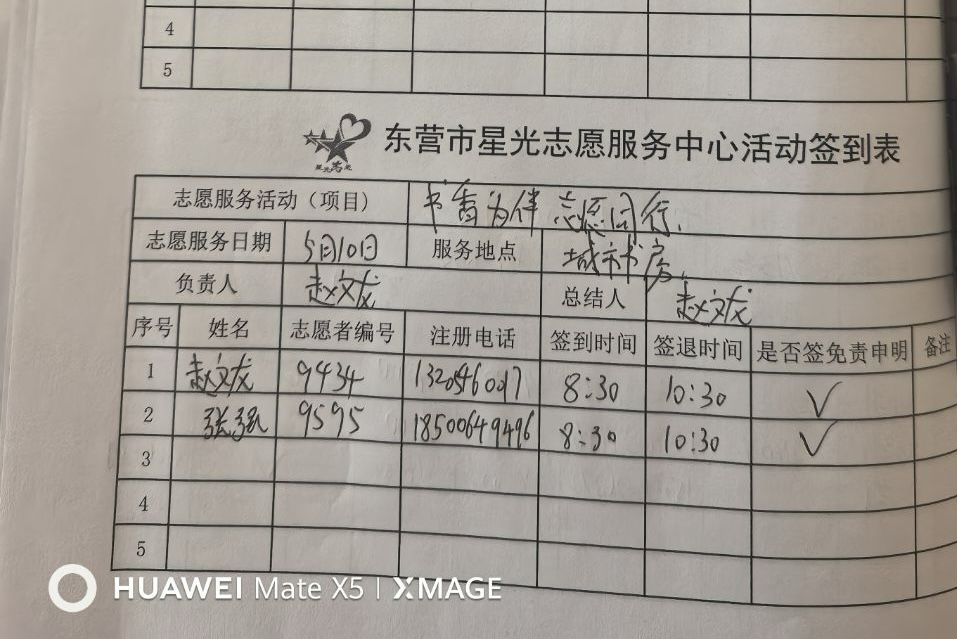 4
5
东营市星光志愿服务中心活动签到表
志愿服务活动（项目） 书香为伴 志愿同行
志愿服务日期 5月10日 服务地点 城市书房
负责人 赵文龙 总结人 赵文龙
序号 姓名 志愿者编号 注册电话 签到时间 签退时间 是否签免责申明 备注
1 赵文龙 9434 8:30 10:30 ✓
2 张强 9595 18500649496 8:30 10:30 ✓
3
4
5
HUAWEI Mate X5 | XMAGE